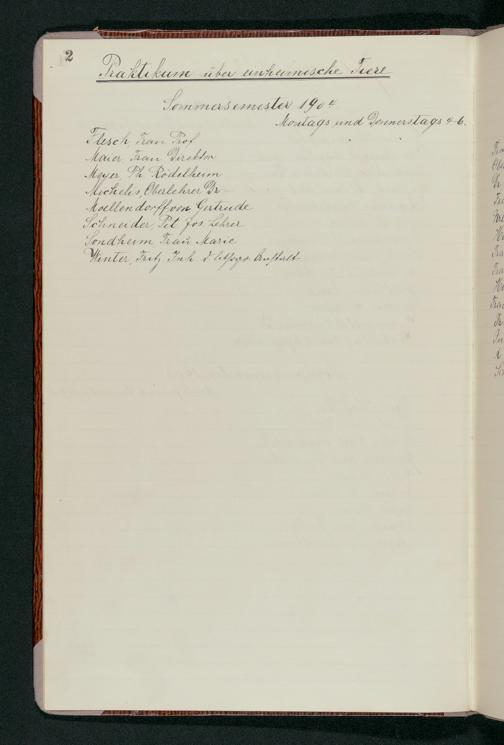 2
Praktikum über einheimische Tiere
Sommersemester 1904
Montags und Donnerstags 4-6.
Flesch Frau Prof
Maier Frau Direktor
Meyer, Ph Rödelheim
Michelis, Oberlehrer Dr
Moellendorff von Gertrude
Schneider, Pet Jos Lehrer
Sondheim Frau Marie
Winter, Fritz Inh d lithogr Anstalt